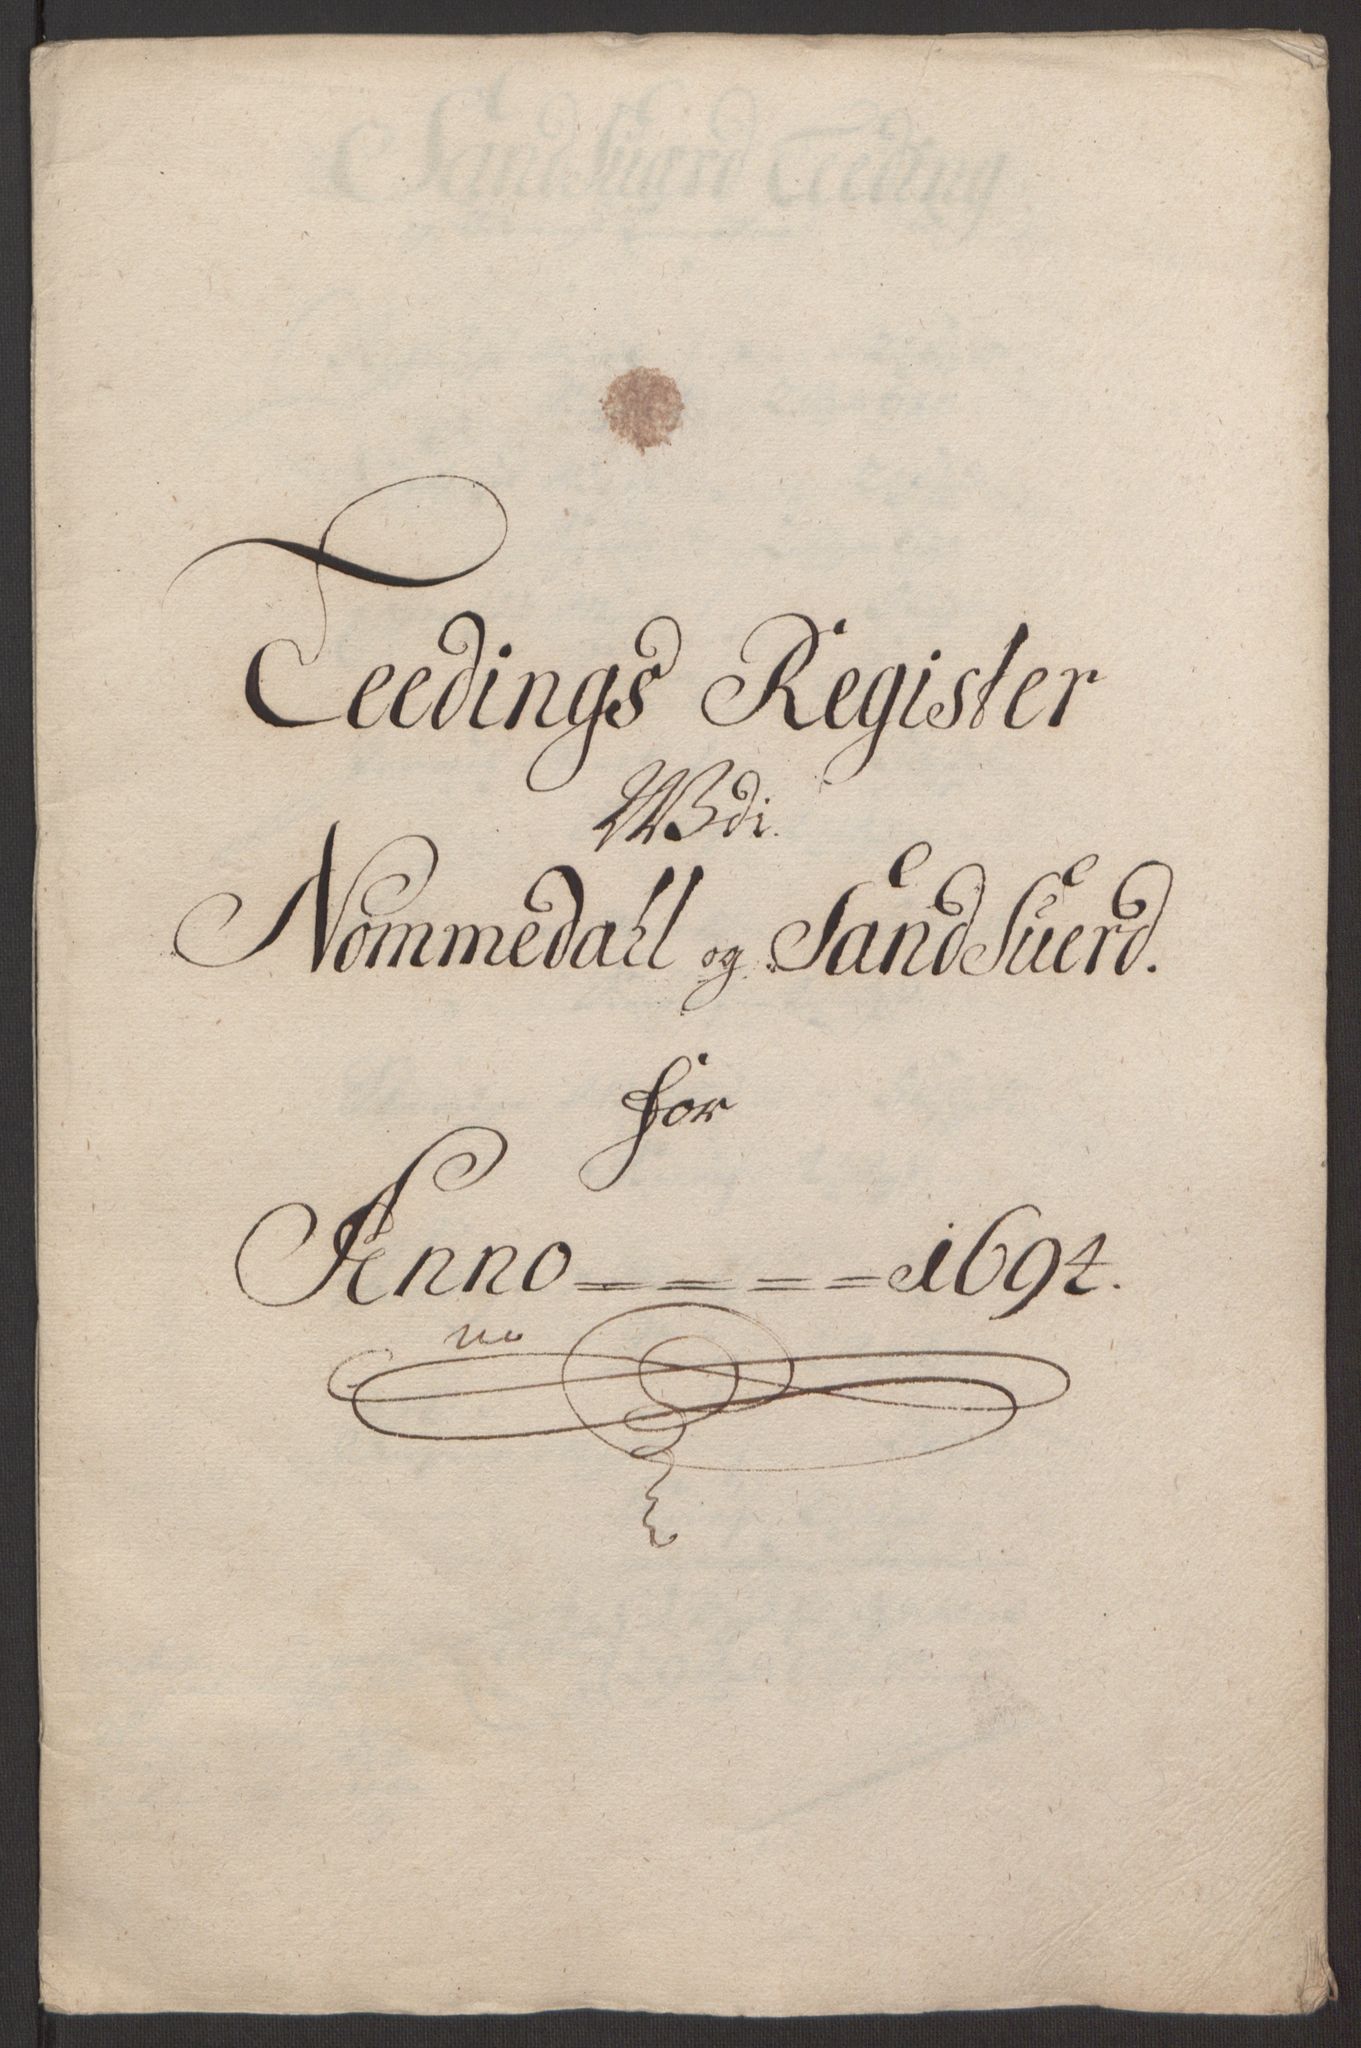 Teedings Register
Udi
Nommedall og Sandsuerd.
for
Anno ____ 1694.